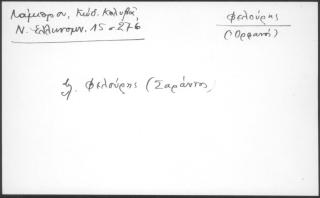 Λάμπρου, Κώδ. Κολυβᾶ
Ν. Ἑλληνομν. 15 σ 276
Φελούρης
(Ὀρφανό)
βλ. Φελούρης (Σαράντος)